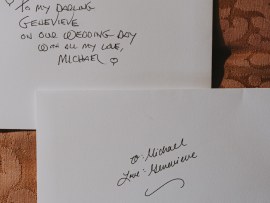 To my Darling
Genevieve
on our wedding day
with all my love,
Michael
To: Michael
Love: Genevieve